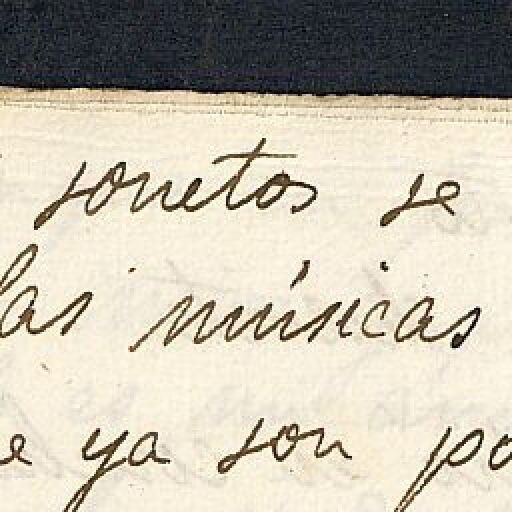 sonetos se
las músicas
e ya son po